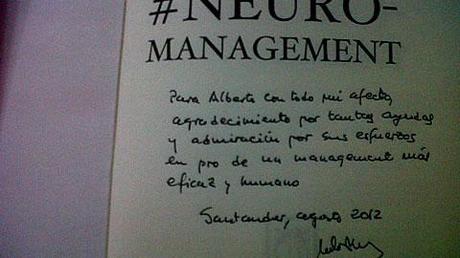 #NEURO-
MANAGEMENT
Para Alberto con todo mi afecto,
agradecimiento por tantas ayudas
y admiración por sus esfuerzos
en pro de un management más
eficaz y humano
Santander, agosto 2012